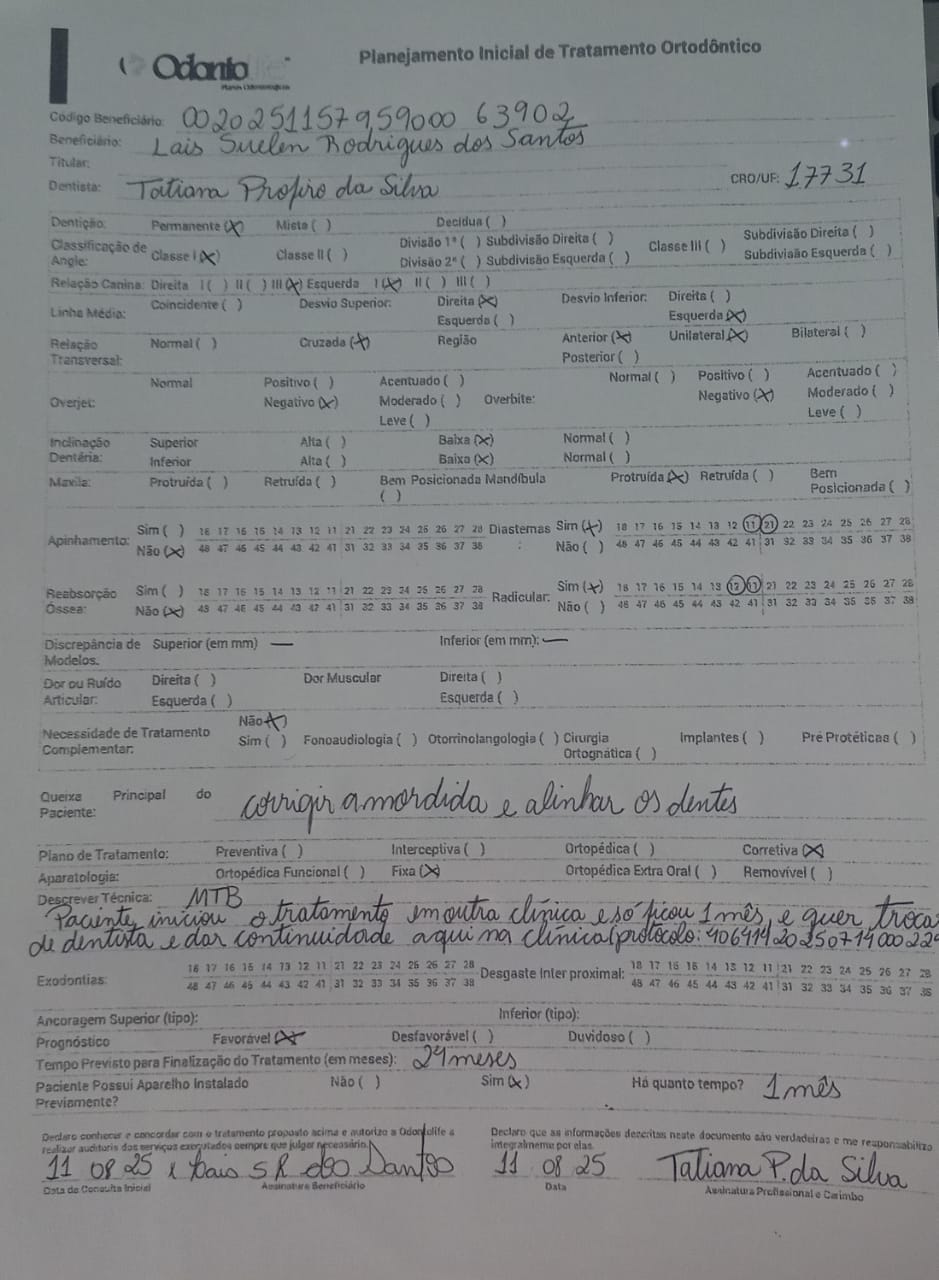 Odonto
Planejamento Inicial de Tratamento Ortodôntico
Planos Odontológicos
Código Beneficiário: 0020251157959000 63902
Beneficiário: Lais Suelen Rodrigues dos Santos
Titular:
Dentista: Tatiana Profiro da Silva CRO/UF: 17731
Dentição: Permanente (X) Mista ( ) Decídua ( )
Classificação de Angle: Classe I (X) Classe II ( ) Divisão 1ª ( ) Subdivisão Direita ( ) Classe III ( ) Subdivisão Direita ( )
Divisão 2ª ( ) Subdivisão Esquerda ( ) Subdivisão Esquerda ( )
Relação Canina: Direita I ( ) II ( ) III (X) Esquerda I (X) II ( ) III ( )
Linha Média: Coincidente ( ) Desvio Superior: Direita (X) Desvio Inferior: Direita ( )
Esquerda ( ) Esquerda (X)
Relação Transversal: Normal ( ) Cruzada (X) Região Anterior (X) Unilateral (X) Bilateral ( )
Posterior ( )
Normal Positivo ( ) Acentuado ( ) Normal ( ) Positivo ( ) Acentuado ( )
Overjet: Negativo (X) Moderado ( ) Overbite: Negativo (X) Moderado ( )
Leve ( ) Leve ( )
Inclinação Dentéria: Superior Alta ( ) Baixa (X) Normal ( )
Inferior Alta ( ) Baixa (X) Normal ( )
Maxila: Protruída ( ) Retruída ( ) Bem Posicionada ( ) Mandíbula Protruída (X) Retruída ( ) Bem Posicionada ( )
Apinhamento: Sim ( ) 18 17 16 15 14 13 12 11 21 22 23 24 25 26 27 28 Diastemas: Sim (X) 18 17 16 15 14 13 12 11 21 22 23 24 25 26 27 28
Não (X) 48 47 46 45 44 43 42 41 31 32 33 34 35 36 37 38 Não ( ) 48 47 46 45 44 43 42 41 31 32 33 34 35 36 37 38
Reabsorção Óssea: Sim ( ) 18 17 16 15 14 13 12 11 21 22 23 24 25 26 27 28 Radicular: Sim (X) 18 17 16 15 14 13 12 11 21 22 23 24 25 26 27 28
Não (X) 48 47 46 45 44 43 42 41 31 32 33 34 35 36 37 38 Não ( ) 48 47 46 45 44 43 42 41 31 32 33 34 35 36 37 38
Discrepância de Modelos: Superior (em mm) — Inferior (em mm): —
Dor ou Ruído Articular: Direita ( ) Dor Muscular Direita ( )
Esquerda ( ) Esquerda ( )
Necessidade de Tratamento Complementar: Não (X)
Sim ( ) Fonoaudiologia ( ) Otorrinolangologia ( ) Cirurgia Ortognática ( ) Implantes ( ) Pré Protéticas ( )
Queixa Principal do Paciente: corrigir a mordida e alinhar os dentes
Plano de Tratamento: Preventiva ( ) Interceptiva ( ) Ortopédica ( ) Corretiva (X)
Aparatologia: Ortopédica Funcional ( ) Fixa (X) Ortopédica Extra Oral ( ) Removível ( )
Descrever Técnica: MTB
Paciente iniciou o tratamento em outra clínica e só ficou 1 mês, e quer troca
de dentista e dar continuidade aqui na clínica (protocolo: 40641420250714000229
Exodontias: 18 17 16 15 14 13 12 11 21 22 23 24 25 26 27 28 Desgaste Inter proximal: 18 17 16 15 14 13 12 11 21 22 23 24 25 26 27 28
48 47 46 45 44 43 42 41 31 32 33 34 35 36 37 38 48 47 46 45 44 43 42 41 31 32 33 34 35 36 37 38
Ancoragem Superior (tipo): Inferior (tipo):
Prognóstico Favorável (X) Desfavorável ( ) Duvidoso ( )
Tempo Previsto para Finalização do Tratamento (em meses): 24 meses
Paciente Possui Aparelho Instalado Previamente? Não ( ) Sim (X) Há quanto tempo? 1 mês
Declaro conhecer e concordar com o tratamento proposto acima e autorizo a Odontolife a realizar auditoria dos serviços executados sempre que julgar necessário.
Declaro que as informações descritas neste documento são verdadeiras e me responsabilizo integralmente por elas.
11 08 25 x Lais S R dos Santos 11 08 25 Tatiana P. da Silva
Data da Consulta Inicial Assinatura Beneficiário Data Assinatura Profissional e Carimbo